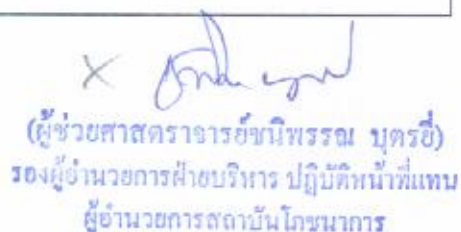 (ผู้ช่วยศาสตราจารย์ชนิพรรณ บุตรยี่)
รองผู้อำนวยการฝ่ายบริหาร ปฏิบัติหน้าที่แทน
ผู้อำนวยการสถาบันโภชนาการ